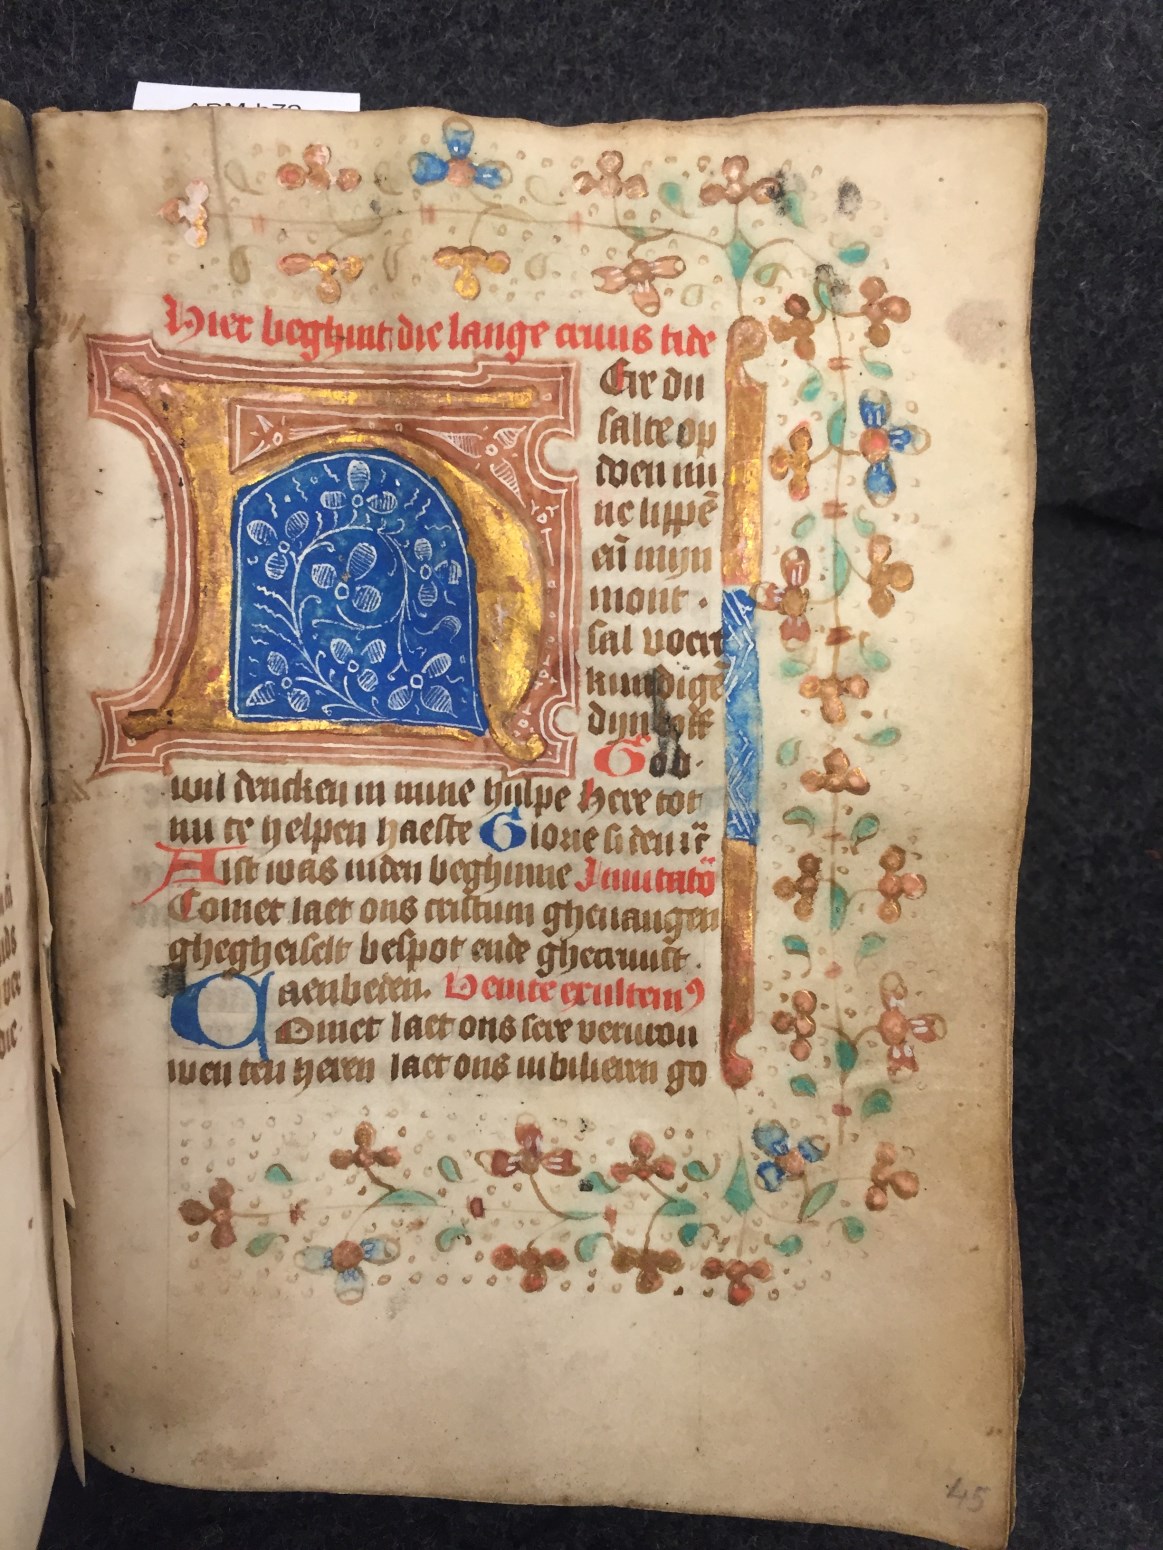 Hier beghint die lange cruus tide
HEre du
salte op
doen mi
ne lippē
eñ mijn
mont .
sal voert
kundigē
dijn loff
God .
wil dencken in mine hulpe Here tot
mi te helpen haeste Glorie si den ꝛc̄
Alst was inden beghinne Inuitatō
Comet laet ons cristum gheuangen
ghegheiselt bespot ende ghecruust .
aenbeden. Venite exultem⁹
Comet laet ons sere verurou
wen den heren laet ons iubilieren go
45